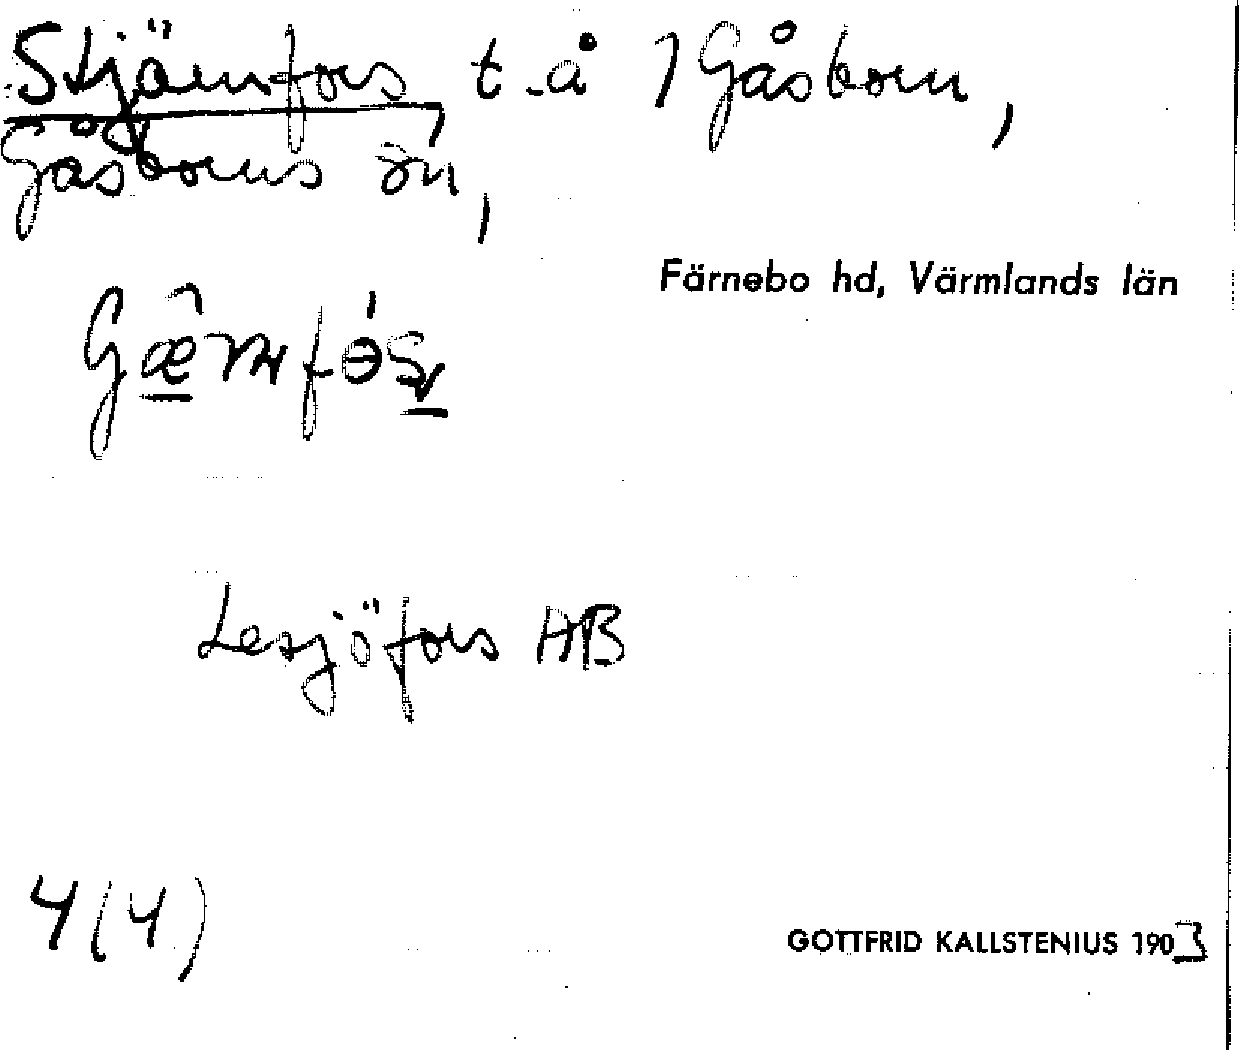 Stjärnfors t.å 1 Gåsborn,
Gåsborns sn,
Färnebo hd, Värmlands län
Lesjöfors AB
4(4)
GOTTFRID KALLSTENIUS 1903